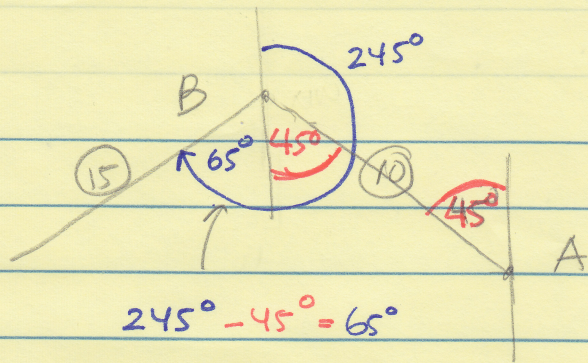 245°
B
45°
65°
15
10
45°
A
245° - 45° = 65°